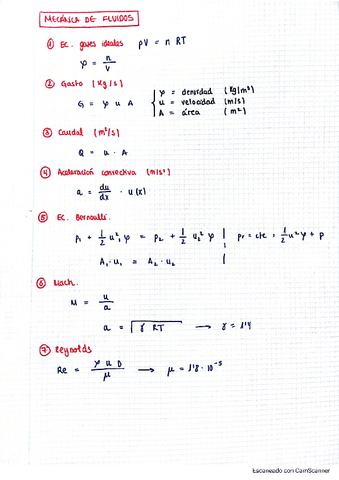 MECÁNICA DE FLUIDOS
① Ec. gases ideales pV = n RT
φ = n/V
② Gasto (Kg/s)
G = φ u A { φ = densidad (Kg/m³)
u = velocidad (m/s)
A = área (m²)
③ Caudal (m³/s)
Q = u · A
④ Aceleración convectiva (m/s²)
a = du/dx · u(x)
⑤ Ec. Bernoulli.
P₁ + 1/2 u₁² φ = P₂ + 1/2 u₂² φ | Pr = cte = 1/2 u² φ + P
A₁ · u₁ = A₂ · u₂
⑥ Mach.
M = u/a
a = √(γ RT) → γ = 1'4
⑦ Reynolds
Re = φ u D / μ → μ = 1'8 · 10⁻⁵
Escaneado con CamScanner